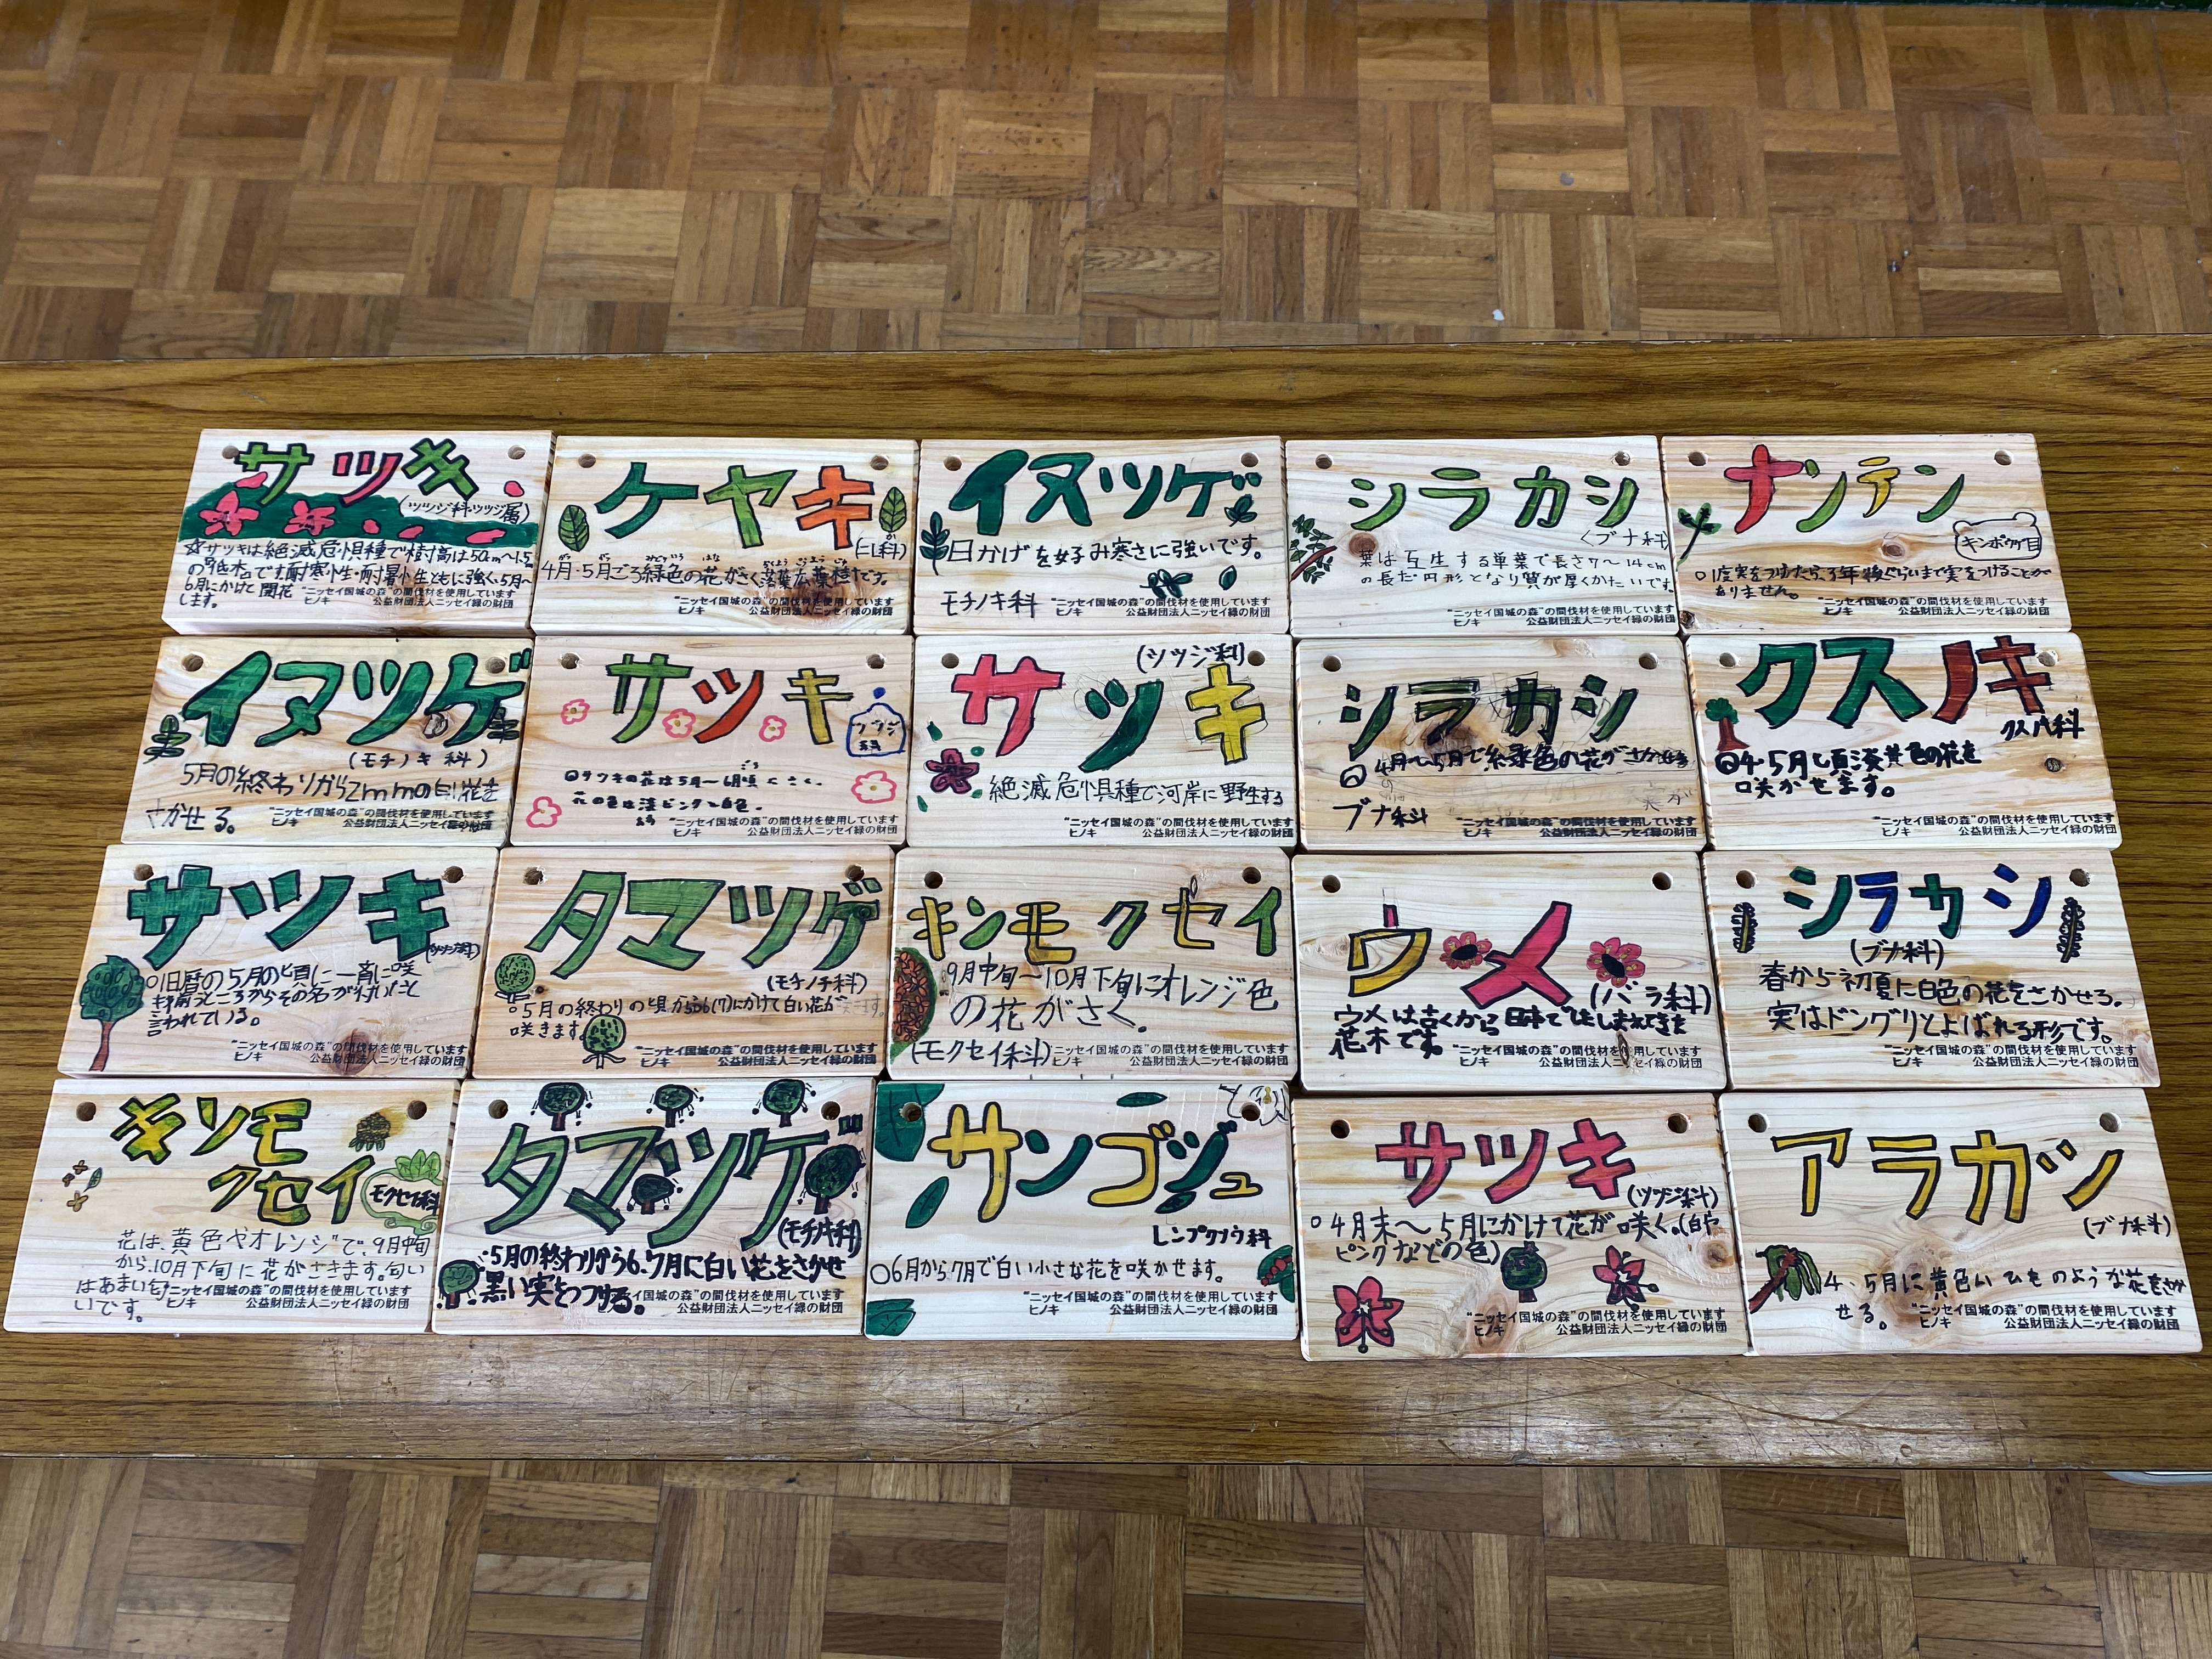 サツキ
(ツツジ科・ツツジ属)
☆サツキは絶滅危惧種で樹高は50cm～1.5
の低木です耐寒小生・耐暑小生ともに強く5月～
6月にかけて開花
します。
"ニッセイ国城の森"の間伐材を使用しています
ヒノキ 公益財団法人ニッセイ緑の財団
ケヤキ
(ニレ科)
4月・5月ごろ緑色の花がさく落葉広葉樹です。
"ニッセイ国城の森"の間伐材を使用しています
ヒノキ 公益財団法人ニッセイ緑の財団
イヌツゲ
日かげを好み寒さに強いです。
モチノキ科
"ニッセイ国城の森"の間伐材を使用しています
ヒノキ 公益財団法人ニッセイ緑の財団
シラカシ
(ブナ科)
葉は互生する単葉で長さ7～14cm
の長だ円形となり質が厚くかたいです
"ニッセイ国城の森"の間伐材を使用しています
ヒノキ 公益財団法人ニッセイ緑の財団
ナンテン
キンポウゲ目
○1度実をつけたら、3年後ぐらいまで実をつけることが
ありません。
"ニッセイ国城の森"の間伐材を使用しています
ヒノキ 公益財団法人ニッセイ緑の財団
イヌツゲ
(モチノキ科)
5月の終わりから2mmの白い花を
さかせる。
"ニッセイ国城の森"の間伐材を使用しています
ヒノキ 公益財団法人ニッセイ緑の財団
サツキ
ツツジ
ごろ
サツキの花は5月～6月頃にさく。
花の色は淡ピンクと白色。
"ニッセイ国城の森"の間伐材を使用しています
ヒノキ 公益財団法人ニッセイ緑の財団
(ツツジ科)
サツキ
絶滅危惧種で河岸に野生する
"ニッセイ国城の森"の間伐材を使用しています
ヒノキ 公益財団法人ニッセイ緑の財団
シラカシ
4月～5月で緑色の花がさかせる
ブナ科
"ニッセイ国城の森"の間伐材を使用しています
ヒノキ 公益財団法人ニッセイ緑の財団
クスノキ
クスノキ科
4・5月頃淡黄色の花を
咲かせます。
"ニッセイ国城の森"の間伐材を使用しています
ヒノキ 公益財団法人ニッセイ緑の財団
サツキ
(ツツジ科)
○旧暦の5月の頃に一斉に咲
き揃うところからその名が付いたと
言われている。
"ニッセイ国城の森"の間伐材を使用しています
ヒノキ 公益財団法人ニッセイ緑の財団
タマツゲ
(モチノチ科)
○5月の終わりの頃から6(7)にかけて白い花が
咲きます。
"ニッセイ国城の森"の間伐材を使用しています
ヒノキ 公益財団法人ニッセイ緑の財団
キンモクセイ
9月中旬～10月下旬にオレンジ色
の花がさく。
(モクセイ科)
"ニッセイ国城の森"の間伐材を使用しています
ヒノキ 公益財団法人ニッセイ緑の財団
ウメ
(バラ科)
ウメは古くから日本で
花木です。
"ニッセイ国城の森"の間伐材を使用しています
ヒノキ 公益財団法人ニッセイ緑の財団
シラカシ
(ブナ科)
春から初夏に白色の花をさかせる。
実はドングリとよばれる形です。
"ニッセイ国城の森"の間伐材を使用しています
ヒノキ 公益財団法人ニッセイ緑の財団
キンモ
クセイ
モクセイ科
花は、黄色やオレンジで、9月中旬
から、10月下旬に花がさきます。匂い
はあまい匂
いです。
"ニッセイ国城の森"の間伐材を使用しています
ヒノキ 公益財団法人ニッセイ緑の財団
タマツゲ
(モチノキ科)
・5月の終わりから6、7月に白い花をさかせ
黒い実をつける。
イ国城の森"の間伐材を使用しています
公益財団法人ニッセイ緑の財団
サンゴジュ
レンプクソウ科
○6月から7月で白い小さな花を咲かせます。
"ニッセイ国城の森"の間伐材を使用しています
ヒノキ 公益財団法人ニッセイ緑の財団
サツキ
(ツツジ科)
○4月末～5月にかけて花が咲く。(白や
ピンクなどの色)
"ニッセイ国城の森"の間伐材を使用しています
ヒノキ 公益財団法人ニッセイ緑の財団
アラカシ
(ブナ科)
4・5月に黄色いひものような花をさか
せる。
"ニッセイ国城の森"の間伐材を使用しています
ヒノキ 公益財団法人ニッセイ緑の財団